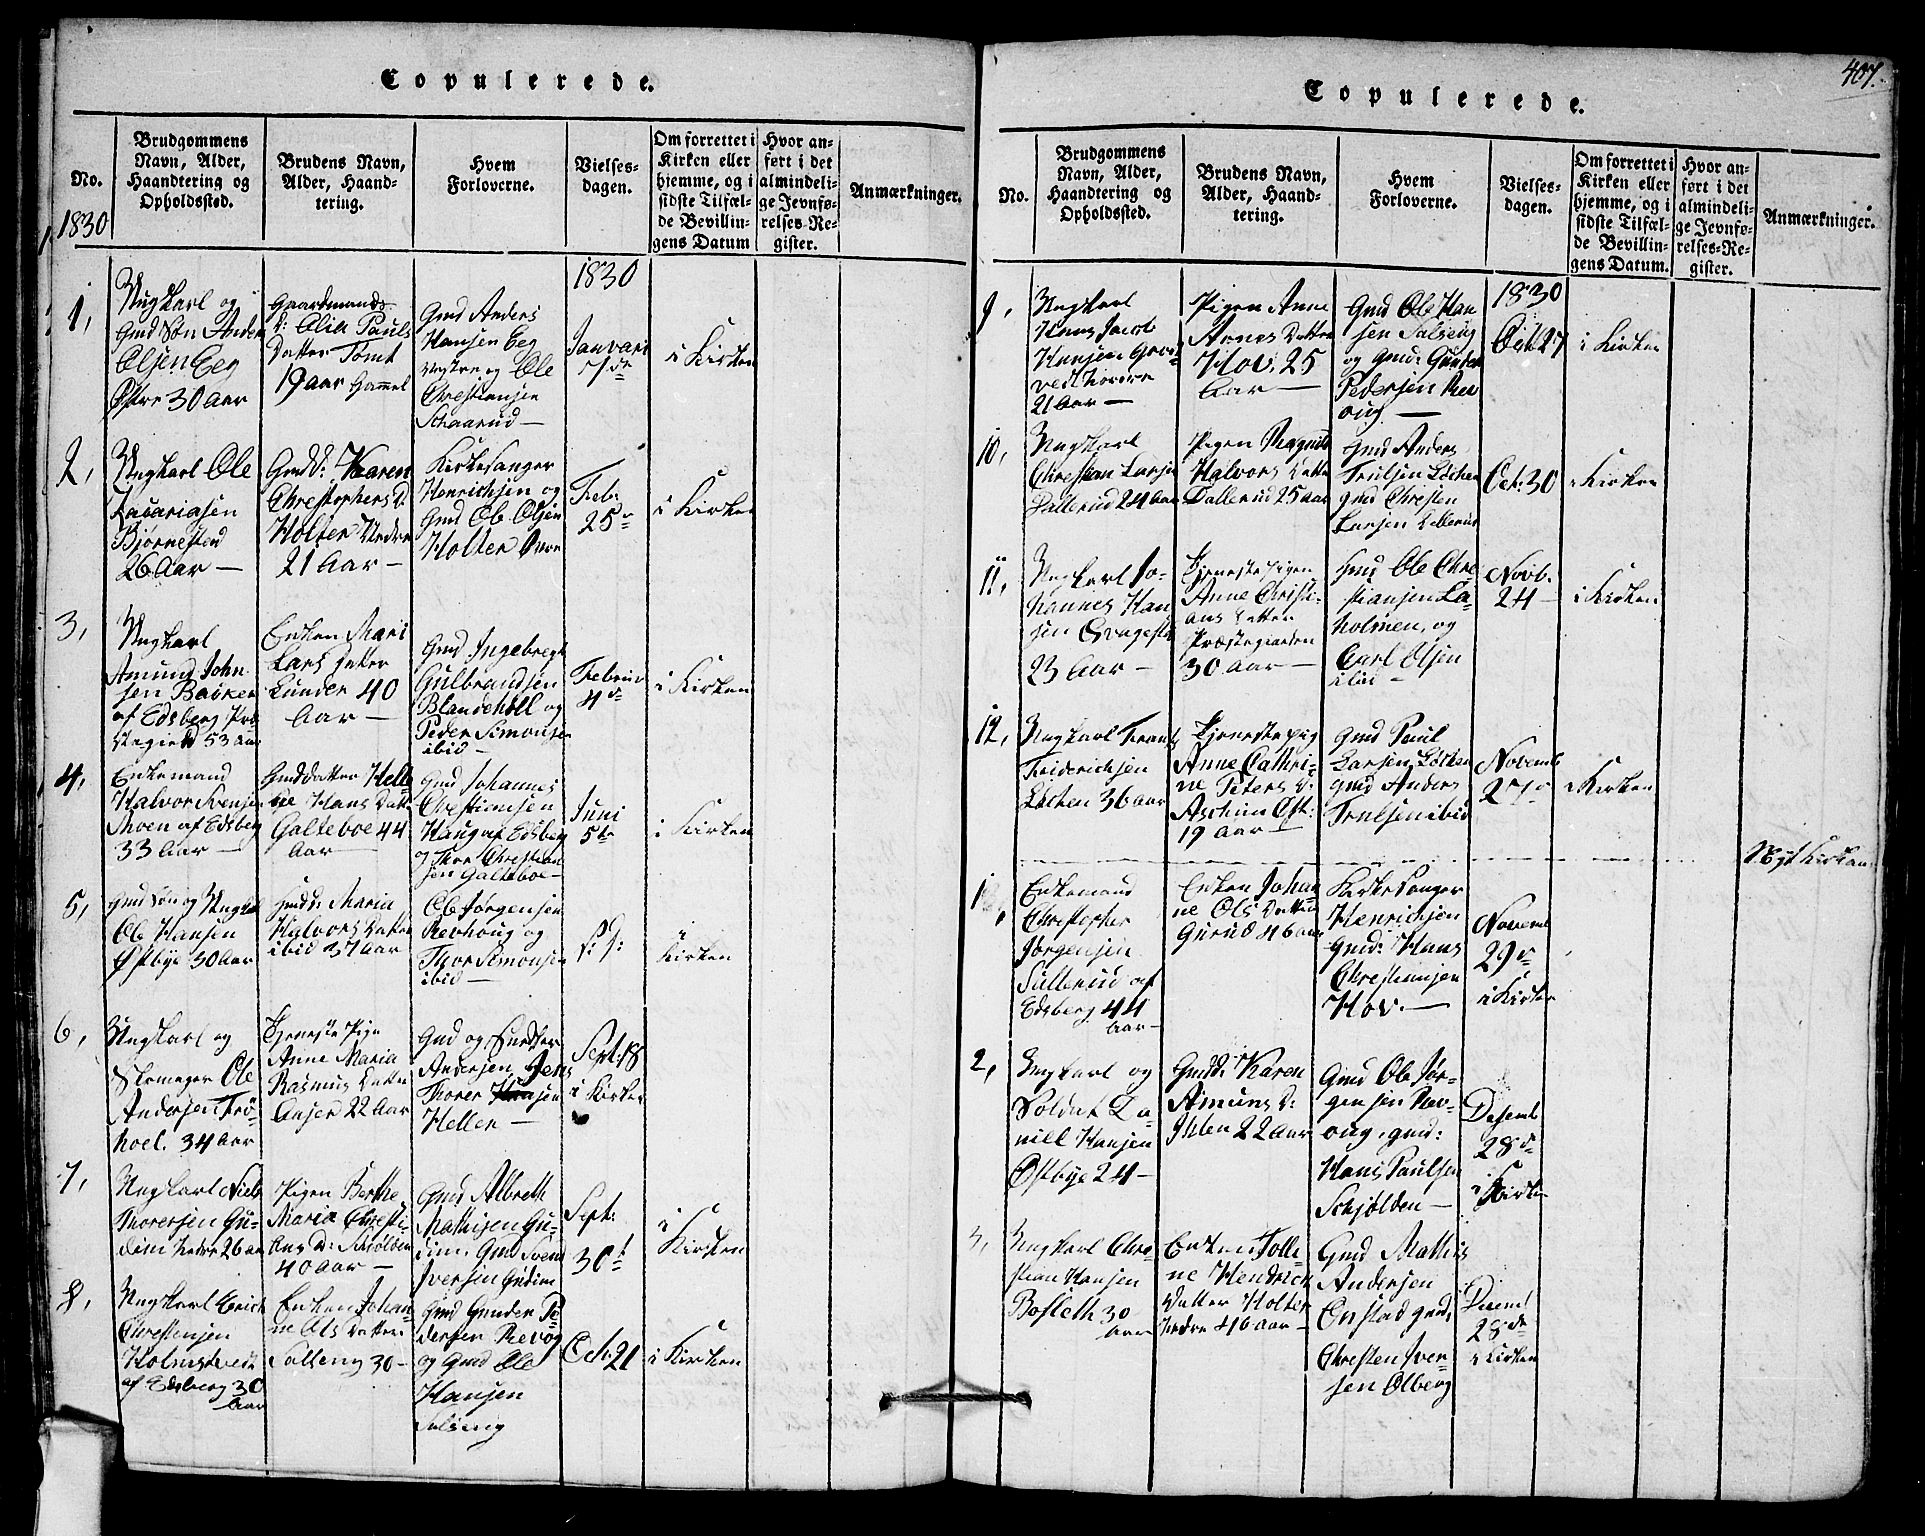 Copulerede.
No.
Brudgommens
Navn, Alder,
Haandtering og
Opholdssted.
Brudens Navn,
Alder, Haand-
tering.
Hvem
Forloverne.
Vielses-
dagen.
Om forrettet i
Kirken eller
hjemme, og i
sidste Tilfæl-
de Bevillin-
gens Datum
Hvor an-
ført i det
almindeli-
ge Jevnfø-
relses-Re-
gister.
Anmærkninger.
1830
1830
1,
Ungkarl og
Gmd Søn Anders
Olsen Eeg
Østre 30 Aar
Gaardmands
D: Olia Pauls
Datter Tomt
19 aar Gammel
Gmd Anders
Hansen Eeg
vestre og Ole
Christiansen
Schaarud
Januari
i Kirken
2,
Ungkarl Ole
Zacariasen
Bjørnestad
26 Aar
GmdD: Karen
Christophers D.
Holter Nedre
21 Aar
Kirkesanger
Henrichsen og
Gmd Ole Olsen
Holter
Febr:
25
i Kirken
3,
Ungkarl
Amund John-
sen Backen
af Edsberg Præ-
stegield 53 aar
Enken Mari
Lars Datter
Lunder 40
Aar
Gmd Ingebregt
Gulbrandsen
Blandehol og
Peder Simonsen
ibid
Februar
4de
i Kirken
4,
Enkemand
Halvor Svensen
Moen af Edsberg
33 Aar
Gmddatter Helle
Hans Datter
Galteboe 44
Aar
Gmd Johannes
Christiansen
Haug af Edsberg
og Thor Christian
sen Galteboe
Juni
5te
i Kirken
5,
Gmd Søn og Ungkarl
Ole Hansen
Østbye 30 Aar
GmdD: Maria
Halvors Datter
ibid 37 Aar
Ole Jørgensen
Revhoug og
Thor Simonsen
ibid
i
Kirken
6,
Ungkarl og
Skomager Ole
Andersen
34 Aar
Tjeneste Pige
Anne Maria
Rasmus Datter
22 Aar
Gmd og
Andersen Jens
Thorer
Heller
Sept: 18
i Kirken
7,
Ungkarl Niels
Thoresen Gu-
dim Nedre 26 aar
Pigen Berthe
Maria Christi-
ans D: Schjølden
40 Aar
Gmd Albreth
Mathisen Gu-
dim Gmd Svend
Iversen Gudim
Sept:
30t
i
Kirken
8,
Ungkarl Erich
Christensen
Holmstvedt
af Edsberg 30
Aar
Enken Johan-
ne Ols Datter
Salseng 30
Gmd Gunder Pe-
dersen Revog
og Gmd Ole
Hansen
Salseng
Oct. 21
i Kirken
407.
Copulerede.
No.
Brudgommens
Navn, Alder,
Haandtering og
Opholdssted.
Brudens Navn,
Alder, Haand-
tering.
Hvem
Forloverne.
Vielses-
dagen.
Om forrettet i
Kirken eller
hjemme, og i
sidste Tilfæl-
de Bevillin-
gens Datum.
Hvor an-
ført i det
almindeli-
ge Jevnfø-
relses-Re-
gister.
Anmærkninger.
1830
9,
Ungkarl
Hans Jacob
Hansen
21 Aar
Pigen Anne
Arnes Datter
Hov, 25
Aar
Gmd Ole Han
sen Salseng
og Gmd: Gunder
Pedersen Rev
oug
Oct: 27
i Kirken
10,
Ungkarl
Christian Larsen
Dallerud 24 Aar
Pigen Ragnild
Halvors Datter
Dallerud 25 aar
Gmd Anders
Trulsen Løchen
gmd Christen
Larsen
Oct: 30
i Kirken
11,
Ungkarl Jo-
hannes Han
sen
23 Aar
Tjeneste Pigen
Anne Christi-
ans Datter
Præstegaarden
30 Aar
Gmd Ole Chri
stiansen La-
holmen, og
Carl Olsen
ibid
Novb.
24
i Kirken
12,
Ungkarl Frants
Friderichsen
Løchen 36 aar
Tjenestepig
Anne Cathri-
ne Peters D.
Aschim Øst:
19 Aar
Gmd Paul
Larsen Løchen
gmd Anders
Trulsen ibid
Novemb
27
i Kirken
Kirken
1,
Enkemand
Christopher
Jørgensen
Sulterud af
Edsberg 44
Aar
Enken Johan
ne Ols Datter
Gurud 46 Aar
Kirkesanger
Henrichsen
gmd: Hans
Christiansen
Hov.
Novemb
29de
i Kirken
2,
Ungkarl og
Soldat Da-
niel Hansen
Østbye 24
GmdD: Karen
Amunds D:
Ihlen 22 Aar
Gmd Ole Jør-
gensen Rev-
oug, gmd:
Hans Paulsen
Schjølden
Desemb
28de
i Kirken
3,
Ungkarl Chri-
stian Hansen
30
Aar
Enken Tolli
ne Hendrick
Datter Holter
Nedre 46 aar
Gmd Mathis
Andersen
Onstad gmd,
Christen Iver-
sen Olberg
Desemb
28de
i Kirken